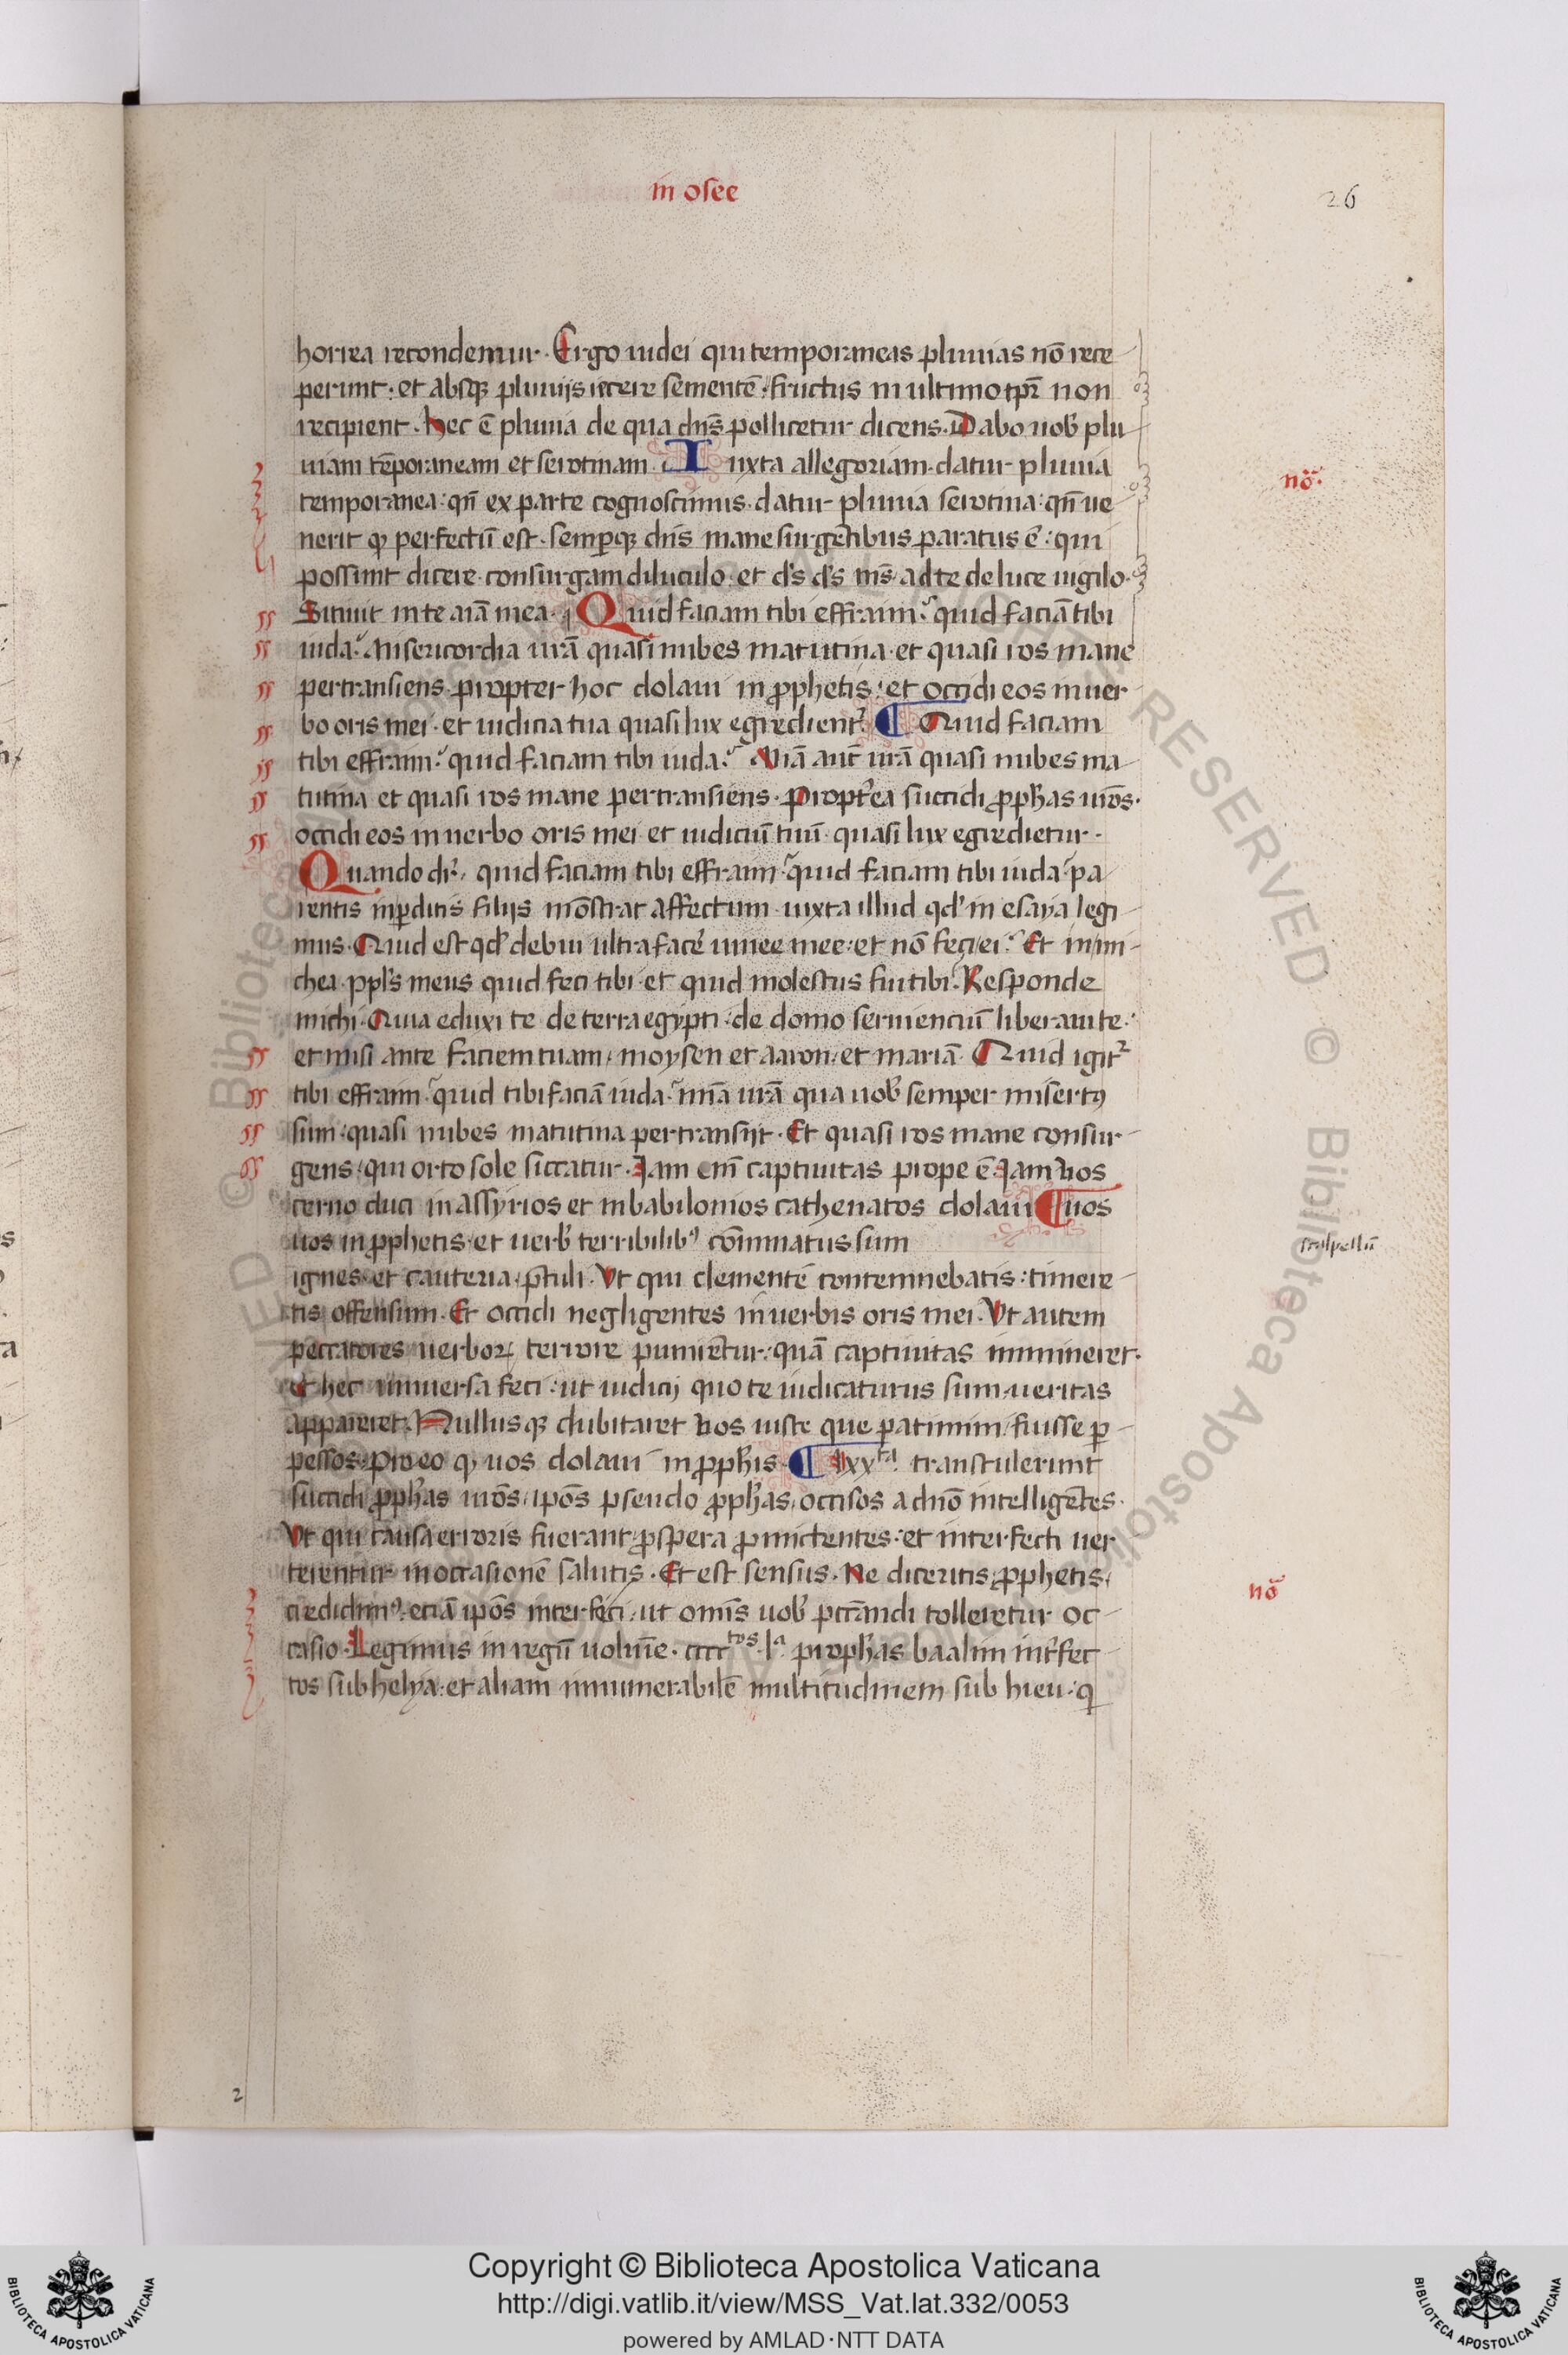 in osee
26
horrea recondemur. Ergo iudei qui temporaneas pluuias nō rece
perunt: et absqꝫ pluuijs iecere sementē: fructus in ultimo tp̄r non
recipient. hec ē pluuia de qua dn̄s pollicetur dicens. Dabo uob̓ plu
uiam tēporaneam et serotinam. Iuxta allegoriam datur pluuia
nō.
temporanea: qn̄ ex parte cognoscimus. datur pluuia serotina: qn̄ ue
nerit ꝙ perfectū est. semꝑqꝫ dn̄s mane surgētibus paratus ē: qui
possunt dicere. consurgam diluculo. et d̓s d̓s m̄s ad te de luce uigilo.
Sitiuit in te aīa mea. Quid faciam tibi effraim? quid faciā tibi
iuda? Misericordia urā quasi nubes matutina. et quasi ros mane
pertransiens. propter hoc dolaui in ꝓphetis: et occidi eos in uer
bo oris mei. et iudicia tua quasi lux egredient᷑. ¶ Quid faciam
tibi effraim? quid faciam tibi iuda? Mīa aut̄ urā quasi nubes ma
tutina et quasi ros mane pertransiens. Propt̓ea succidi ꝓph̄as urōs.
occidi eos in uerbo oris mei et iudiciū tuū quasi lux egredietur.
Quando dr̄, quid faciam tibi effraim? quid faciam tibi iuda? pa
rentis in ꝑditis filijs mōstrat affectum. iuxta illud qd̓ in esaya legi
mus. Quid est qd̓ debui ultra facē uinee mee: et nō feci ei? Et in mi
chea. ppl̓s meus quid feci tibi et quid molestus fui tibi? Responde
michi. Quia eduxi te de terra egypti: de domo seruientiū liberaui te:
et misi ante faciem tuam, moysen et aaron, et mariā. Quid igit᷑
tibi effraim? quid tibi faciā iuda? mīa urā qua uob̓ semper misertꝰ
sum: quasi nubes matutina pertransijt. Et quasi ros mane consur
gens: qui orto sole siccatur. Jam em̄ captiuitas prope ē. Jam uos
cerno duci in assyrios et in babilonios cathenatos dolaui ¶ uos
uos in ꝓphetis: et uerb̓ terribilibꝰ cōminatus sum
scalpellū
ignes et cauteria, p̄tuli. Vt qui clementē contemnebatis: timere
tis offensum. Et occidi negligentes in uerbis oris mei. Vt autem
peccatores uerboꝝ terrore punirētur: quā captiuitas immineret.
et hec uniuersa feci: ut iudicij quo te iudicaturus sum, ueritas
appareret. Nullusqꝫ dubitaret uos iuste que patimini, fuisse ꝑ
pessos. Pro eo ꝙ uos dolaui in ꝓph̄is. ¶ lxxᵗᵃ. transtulerunt
succidi ꝓph̄as urōs, ipōs pseudo ꝓph̄as, occisos a dnō intelligētes.
Vt qui causa erroris fuerant, ꝓspera ꝓmictentes: et interfecti uer
terentur in occasionē salutis. Et est sensus. Ne diceritis, ꝓphetis,
nō
credidimꝰ: etiā ipōs interfeci, ut omīs uob̓ pccandi tolleretur oc
casio. Legimus in regū uoluīe. ccccᵗᵒˢ. lᵃ. proph̄as baalim int̓fec
tos sub helya: et aliam innumerabilē multitudinem sub hieu. q̄
2
Copyright © Biblioteca Apostolica Vaticana
http://digi.vatlib.it/view/MSS_Vat.lat.332/0053
powered by AMLAD·NTT DATA